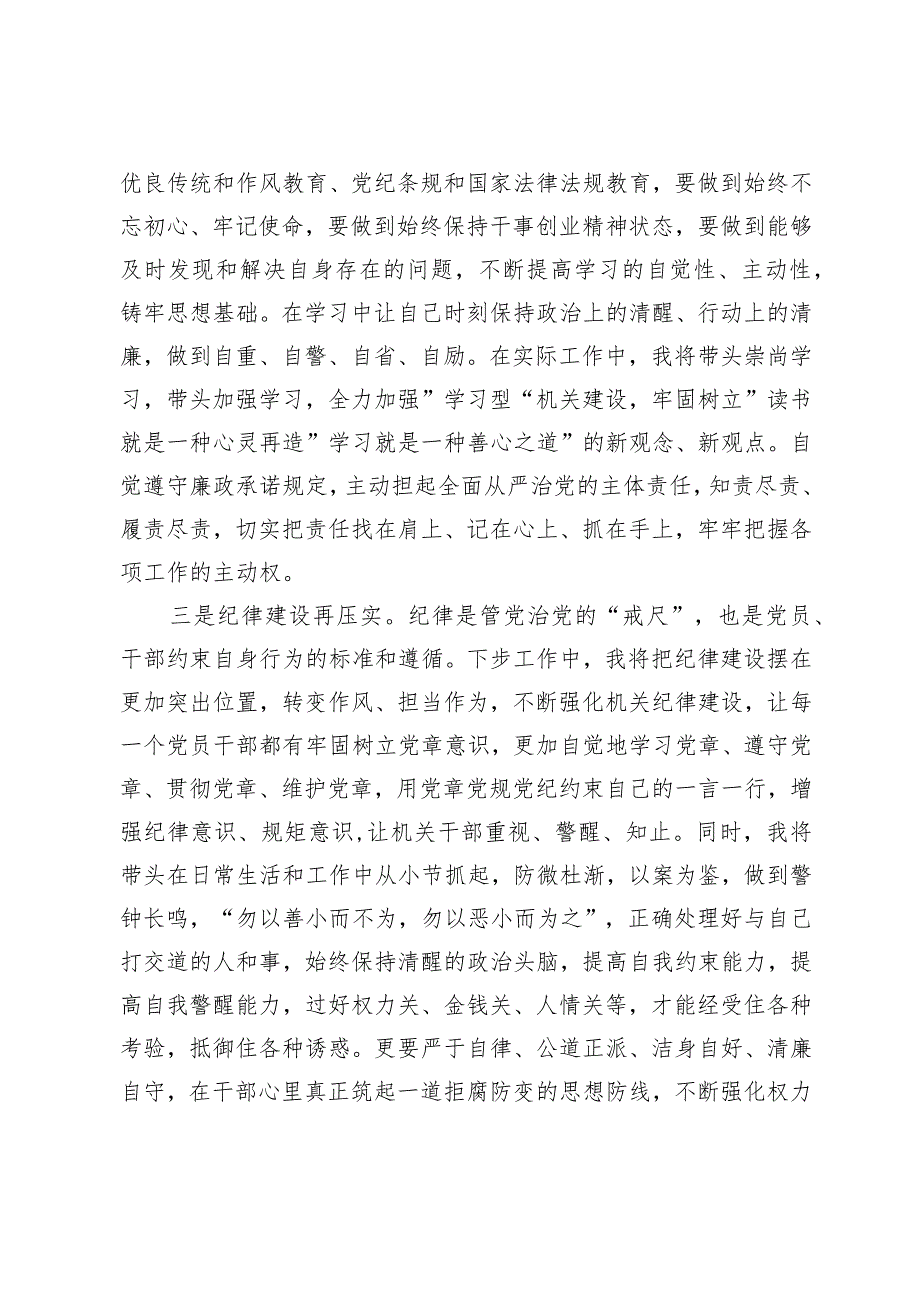 优良传统和作风教育、党纪条规和国家法律法规教育，要做到始终不
忘初心、牢记使命，要做到始终保持干事创业精神状态，要做到能够
及时发现和解决自身存在的问题，不断提高学习的自觉性、主动性，
铸牢思想基础。在学习中让自己时刻保持政治上的清醒、行动上的清
廉，做到自重、自警、自省、自励。在实际工作中，我将带头崇尚学
习，带头加强学习，全力加强”学习型“机关建设，牢固树立”读书
就是一种心灵再造”学习就是一种善心之道”的新观念、新观点。自
觉遵守廉政承诺规定，主动担起全面从严治党的主体责任，知责尽责、
履责尽责，切实把责任找在肩上、记在心上、抓在手上，牢牢把握各
项工作的主动权。
三是纪律建设再压实。纪律是管党治党的“戒尺”，也是党员、
干部约束自身行为的标准和遵循。下步工作中，我将把纪律建设摆在
更加突出位置，转变作风、担当作为，不断强化机关纪律建设，让每
一个党员干部都有牢固树立党章意识，更加自觉地学习党章、遵守党
章、贯彻党章、维护党章，用党章党规党纪约束自己的一言一行，增
强纪律意识、规矩意识,让机关干部重视、警醒、知止。同时，我将
带头在日常生活和工作中从小节抓起，防微杜渐，以案为鉴，做到警
钟长鸣，“勿以善小而不为，勿以恶小而为之”，正确处理好与自己
打交道的人和事，始终保持清醒的政治头脑，提高自我约束能力，提
高自我警醒能力，过好权力关、金钱关、人情关等，才能经受住各种
考验，抵御住各种诱惑。更要严于自律、公道正派、洁身自好、清廉
自守，在干部心里真正筑起一道拒腐防变的思想防线，不断强化权力